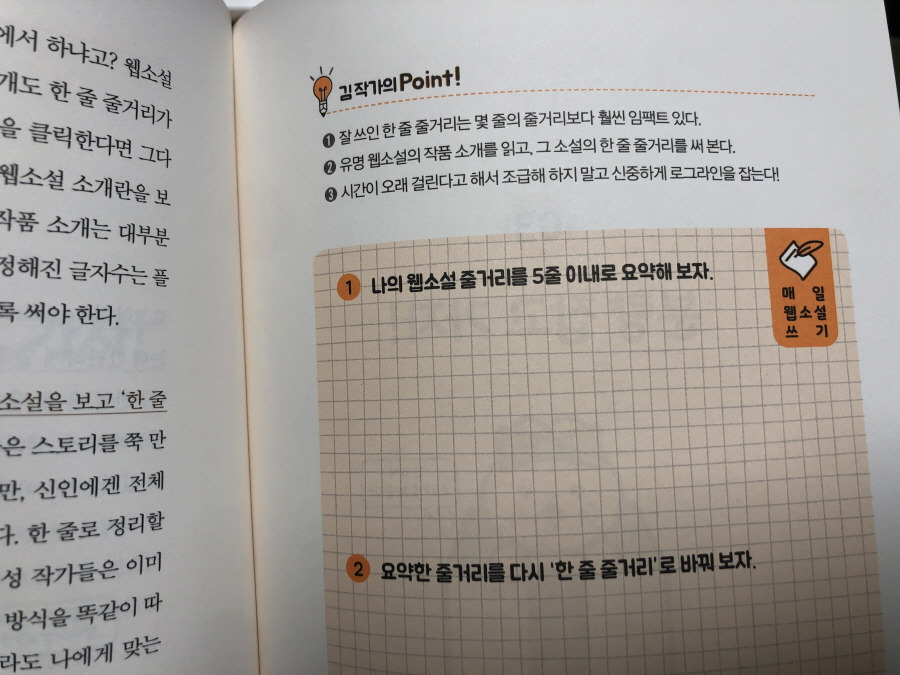 에서 하냐고? 웹소설
개도 한 줄 줄거리가
을 클릭한다면 그다
웹소설 소개란을 보
작품 소개는 대부분
정해진 글자수는 플
록 써야 한다.
소설을 보고 ‘한 줄
은 스토리를 쭉 만
만, 신인에겐 전체
다. 한 줄로 정리할
성 작가들은 이미
방식을 똑같이 따
라도 나에게 맞는
김작가의 Point!
1 잘 쓰인 한 줄 줄거리는 몇 줄의 줄거리보다 훨씬 임팩트 있다.
2 유명 웹소설의 작품 소개를 읽고, 그 소설의 한 줄 줄거리를 써 본다.
3 시간이 오래 걸린다고 해서 조급해 하지 말고 신중하게 로그라인을 잡는다!
매일
웹소설
쓰기
1 나의 웹소설 줄거리를 5줄 이내로 요약해 보자.
2 요약한 줄거리를 다시 ‘한 줄 줄거리’로 바꿔 보자.